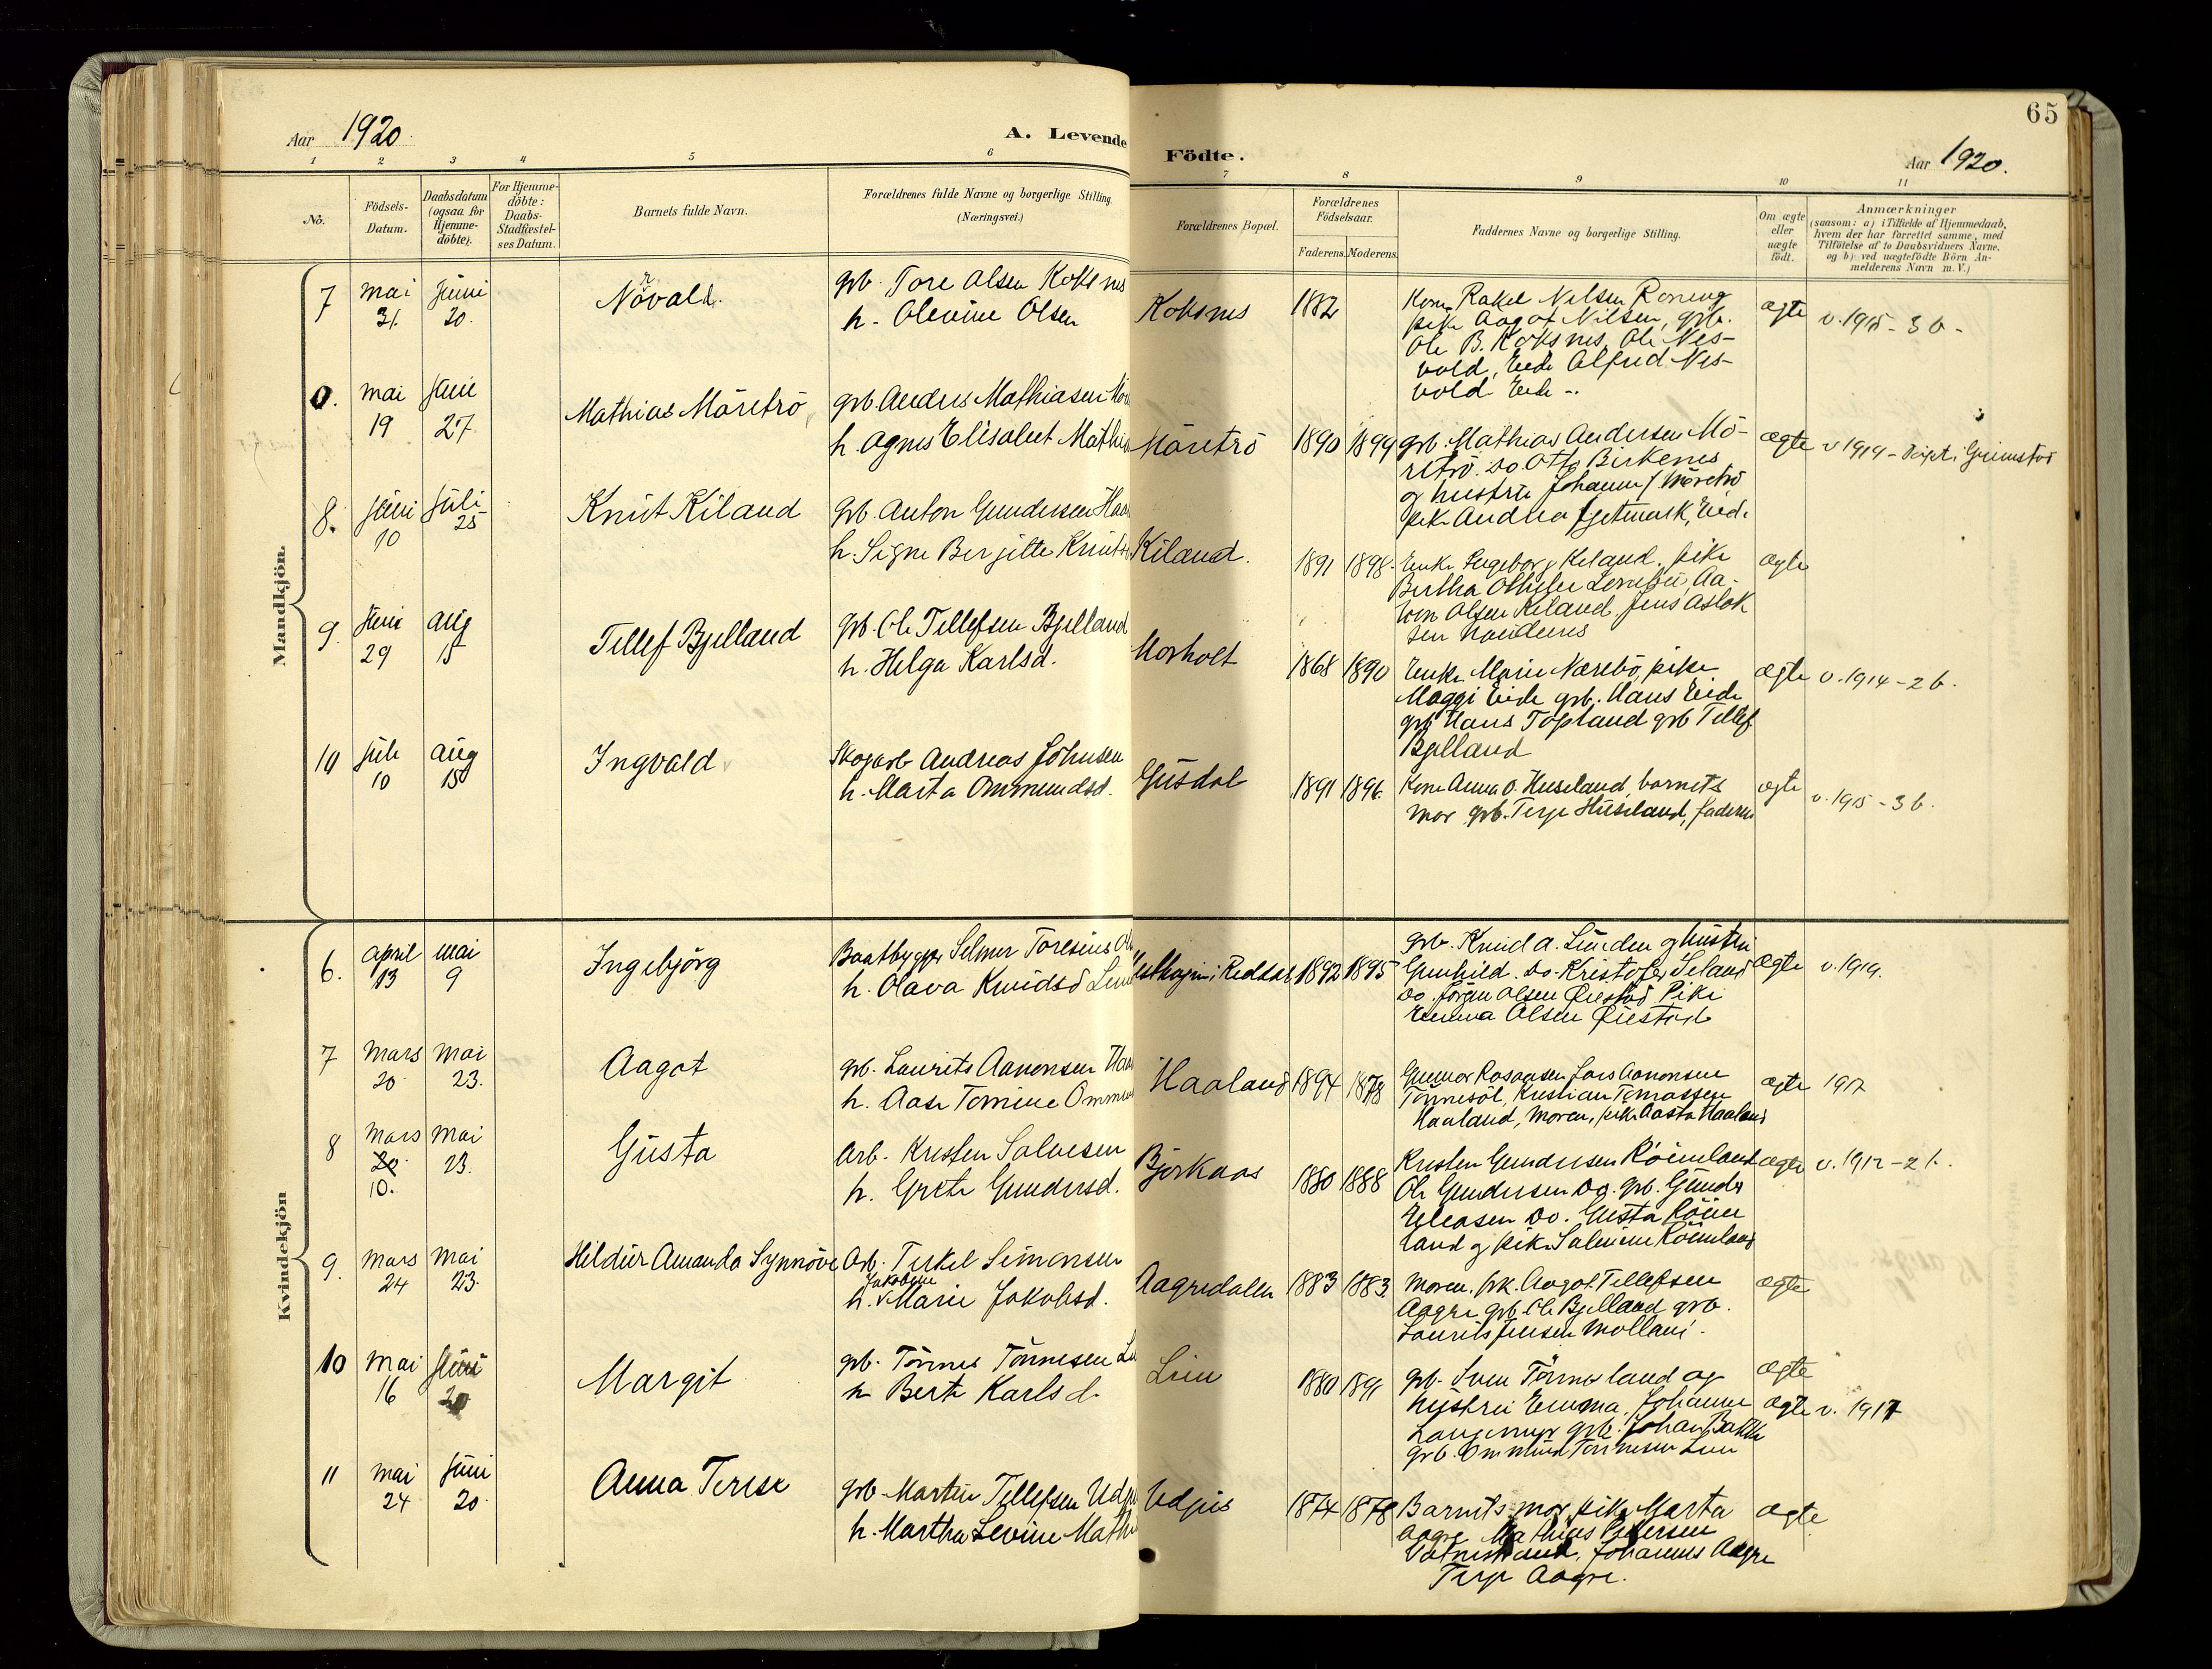 65
Aar 1920.
A. Levende
Födte.
Aar 1920.
1 2 3 4 5 6 7 8 9 10 11
No.
Födsels-
Datum.
Daabsdatum
(ogsaa for
Hjemme-
döbte).
For Hjemme-
döbte:
Daabs-
Stadfæstel-
ses Datum.
Barnets fulde Navn.
Forældrenes fulde Navne og borgerlige Stilling
(Næringsvei.)
Forældrenes Bopæl.
Forældrenes
Födselsaar.
Faderens. Moderens.
Faddernes Navne og borgerlige Stilling.
Om ægte
eller
uægte
födt.
Anmærkninger
(saasom: a) i Tilfælde af Hjemmedaab,
hvem der har forrettet samme, med
Tilföielse af to Daabsvidners Navne,
og b) ved uægtefödte Börn An-
melderens Navn m. V.)
Mandkjön.
7 mai 31. juni 20.
Növald.
grb. Tore Olsen Koksnes
h. Olevine Olsen
Koksnes
1882
Kone Rakel Nilsen
pike Aagot Nilsen, grb.
Ole B. Koksnes, Ole Nes-
vold, Eide Alfred Nes-
vold Eide
ægte
v. 1915 - 3 b -
0. mai 19 juni 27
Mathias Möretrö
grb Anders Mathiasen
h. Agnes Elisabet
Möretrö
1890 1899
grb. Mathias Andersen Mö-
retrö. Do. Otto Birkenes
og hustru Johanne Möretrö
pike Andrea
ægte
v 1919 - Grimstad
8. juni 10 juli 25
Knut Kiland
grb. Anton Gundersen
h. Signe Bergitte
Kiland.
1891 1898
Enke Ingeborg Kiland, pike
Bertha
Olsen Kiland Jens Aslak
sen
ægte
9. juni 29 aug 15
Tellef Bjelland
grb Ole Tellefsen Bjelland
h. Helga Karlsd.
Morholt
1868 1890
Enke Marie Næsebö, pike
Maggi Eide grb. Hans Eide
grb Hans Topland grb Tellef
Bjelland
ægte
v. 1914 - 2 b.
10 juli 10 aug 15
Ingvald
Skogarb Andreas Johnsen
h. Marta Ommundsd.
Gusdal
1891 1896.
Kone Anna O. Huseland, barnets
mor grb. Terje Huseland, faderen
ægte
v. 1915 - 3 b.
Kvindekjön
6. april 13 mai 9
Ingebjörg
Baatbygger Selmer Toresius
h. Olava Knudsd
1892 1895
grb. Knud A. Linden og hustru
Gunhild. Do. Kristofer Seland
Do. Jörgen Olsen Öiestad Pike
Emma Olsen Öiestad
ægte
v. 1919.
7 mars 20 mai 23.
Aagot
grb. Laurits Aanonsen
h. Aase Tomine
Haaland
1894 1878
Gunnar Rosaasen Lars Aanonsen
Tönnesöl, Kristian Tomassen
Haaland, Moren, pike Aasta Haaland
ægte
1917
8 mars 20. 10. mai 23.
Gusta
Arb. Kresten Salvesen
h. Grete Gundersd.
Björkaas
1880 1888
Kresten Gundersen Röimeland
Ole Gundersen Do. grb. Gunder
Do. Gusta Röime
land og pike Salmine Röimeland
ægte
v. 1912 - 2 b.
9. mars 24 mai 23.
Hildur Amanda Synnöve
Arb. Terkel Simonsen
Jakobine
h. Marie Jakobsd.
Aagredalen
1883 1883
Moren, frk. Aagot Tellefsen
Aagre grb Ole Bjelland grb.
Laurits Jensen
ægte
10 mai 16 juni 20
Margit
grb. Tönnes Tönnesen
h Berte Karlsd
Lien
1880 1891
grb. Sven Tönnesland og
hustru Emma, Johanne
grb. Johan Bakke
grb. Ommund Tönnesen Lien
ægte
ægte v. 1917
11 mai 24 juni 20
Anna Terese
grb Martin Tellefsen
h. Martha Levine
Udjus
1874 1878
Barnets mor, pike Marta
Aagre Mathias Pedersen
Vatnestrand, Johannes Aagre
Terje Aagre.
ægte